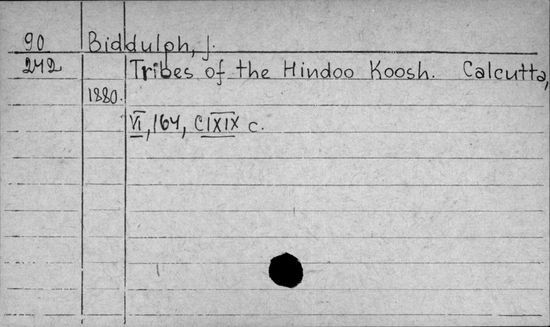 90 Biddulph, J.
242 Tribes of the Hindoo Koosh. Calcutta,
1880.
VI, 164, CIXIX c.